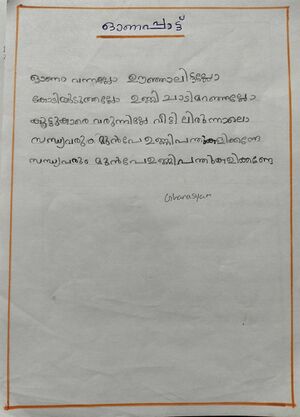 ഓണപ്പാട്ട്
ഓണം വന്നല്ലോ ഊഞ്ഞാലിട്ടല്ലോ
കോടിയുടുത്തല്ലോ ഉണ്ണി ചാടിമറഞ്ഞല്ലോ
കൂട്ടുകാരെ വരുന്നില്ലേ വീട്ടിലിരുന്നാലൊ
സന്ധ്യവരും മുൻപേ ഉണ്ണിപന്തുകളിക്കണേ
സന്ധ്യവരും മുൻപേ ഉണ്ണിപന്തുകളിക്കണേ